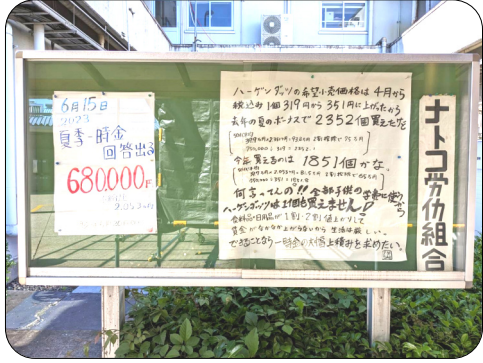 6月15日
2023
夏季一時金
回答出る
680,000円
ハーゲンダッツの希望小売価格は4月から
税込み1個319円から351円に上がったから
去年の夏のボーナスで2352個買えたけど
今年買えるのは1851個かな。
何言ってんの!!全部子供の学費に使うから
ハーゲンダッツは1個も買えません!
食料品・日用品が1割・2割値上がりして
賃金がなかなか上がらないから生活は厳しい。
できることなら一時金の大幅上積みを求めたい。
ナトコ労仂組合